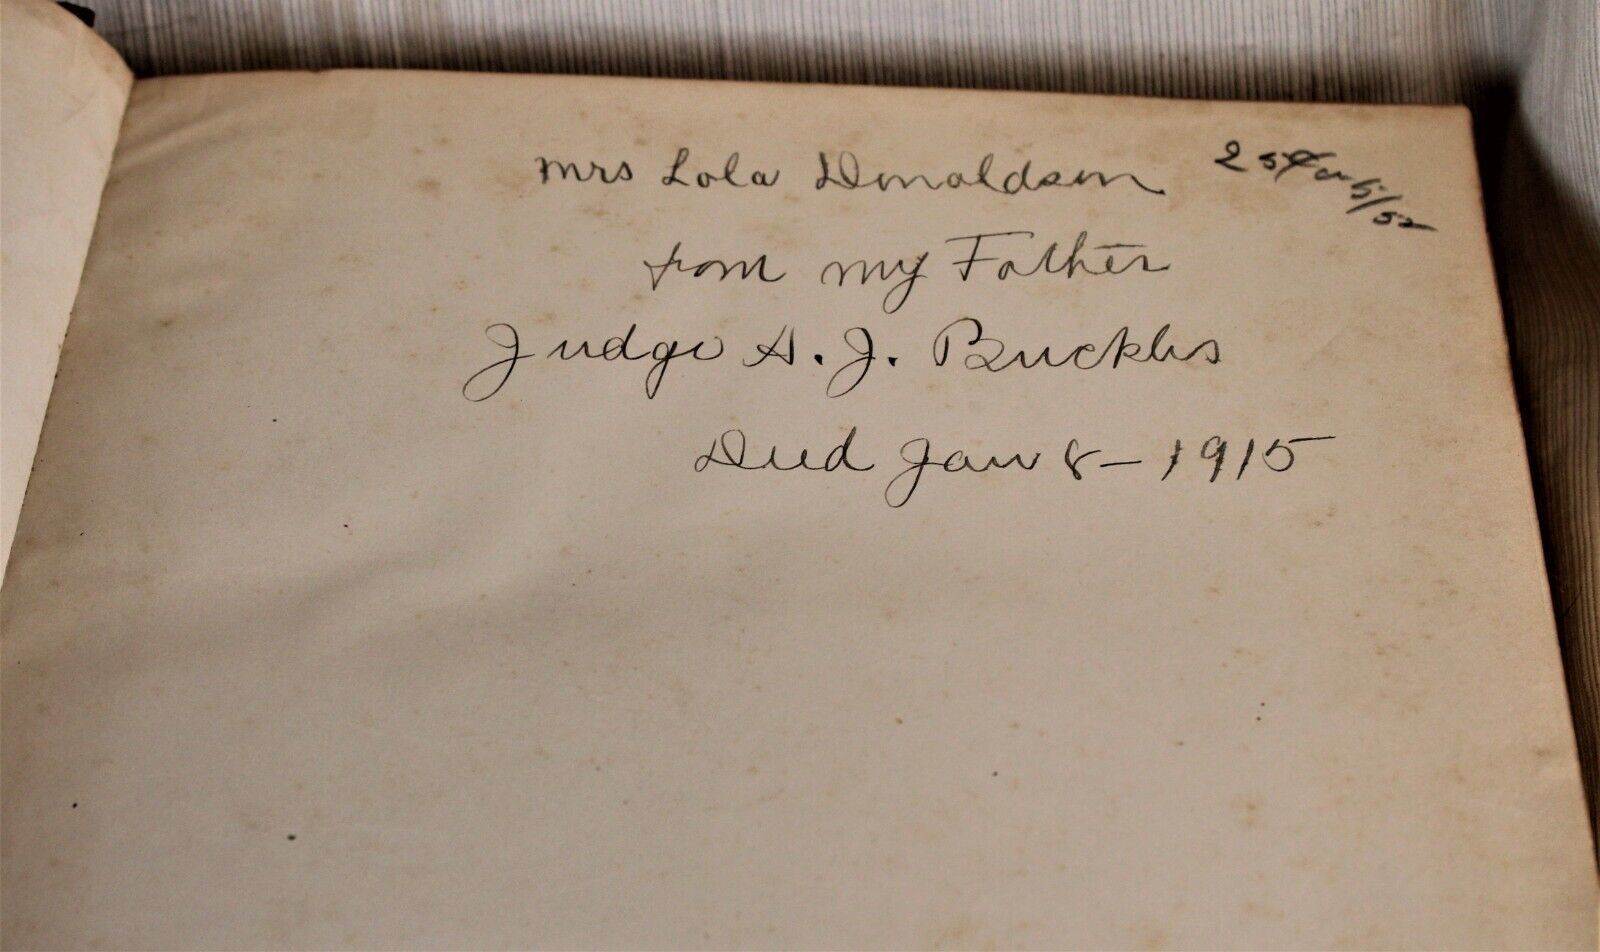 Mrs Lola Donaldson
from my Father
Judge A. J. Buckles
Died Jan 8 - 1915